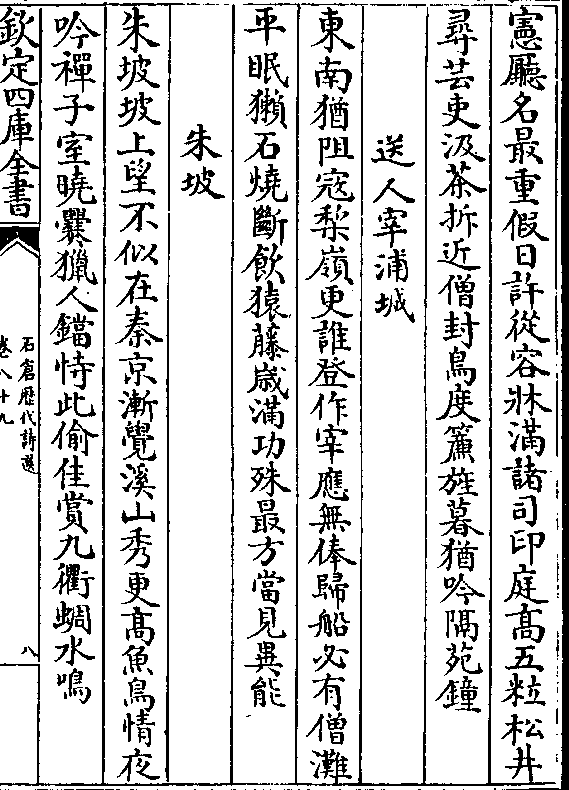 憲廳名最重假日許從容牀滿諸司印庭髙五粒松井
尋芸吏汲茶拆近僧封鳥度簾旌暮猶吟隔苑鐘
送人宰浦城
東南猶阻寇梨嶺更誰登作宰應無俸歸船必有僧灘
平眠獺石燒斷飲猿藤歳滿功殊最方當見異能
朱坡
朱坡坡上望不似在秦京漸覺溪山秀更髙魚鳥情夜
吟禪子室曉爨獵人鐺恃此偷佳賞九衢蜩水鳴
欽定四庫全書
石倉歴代詩選
卷八十九
八